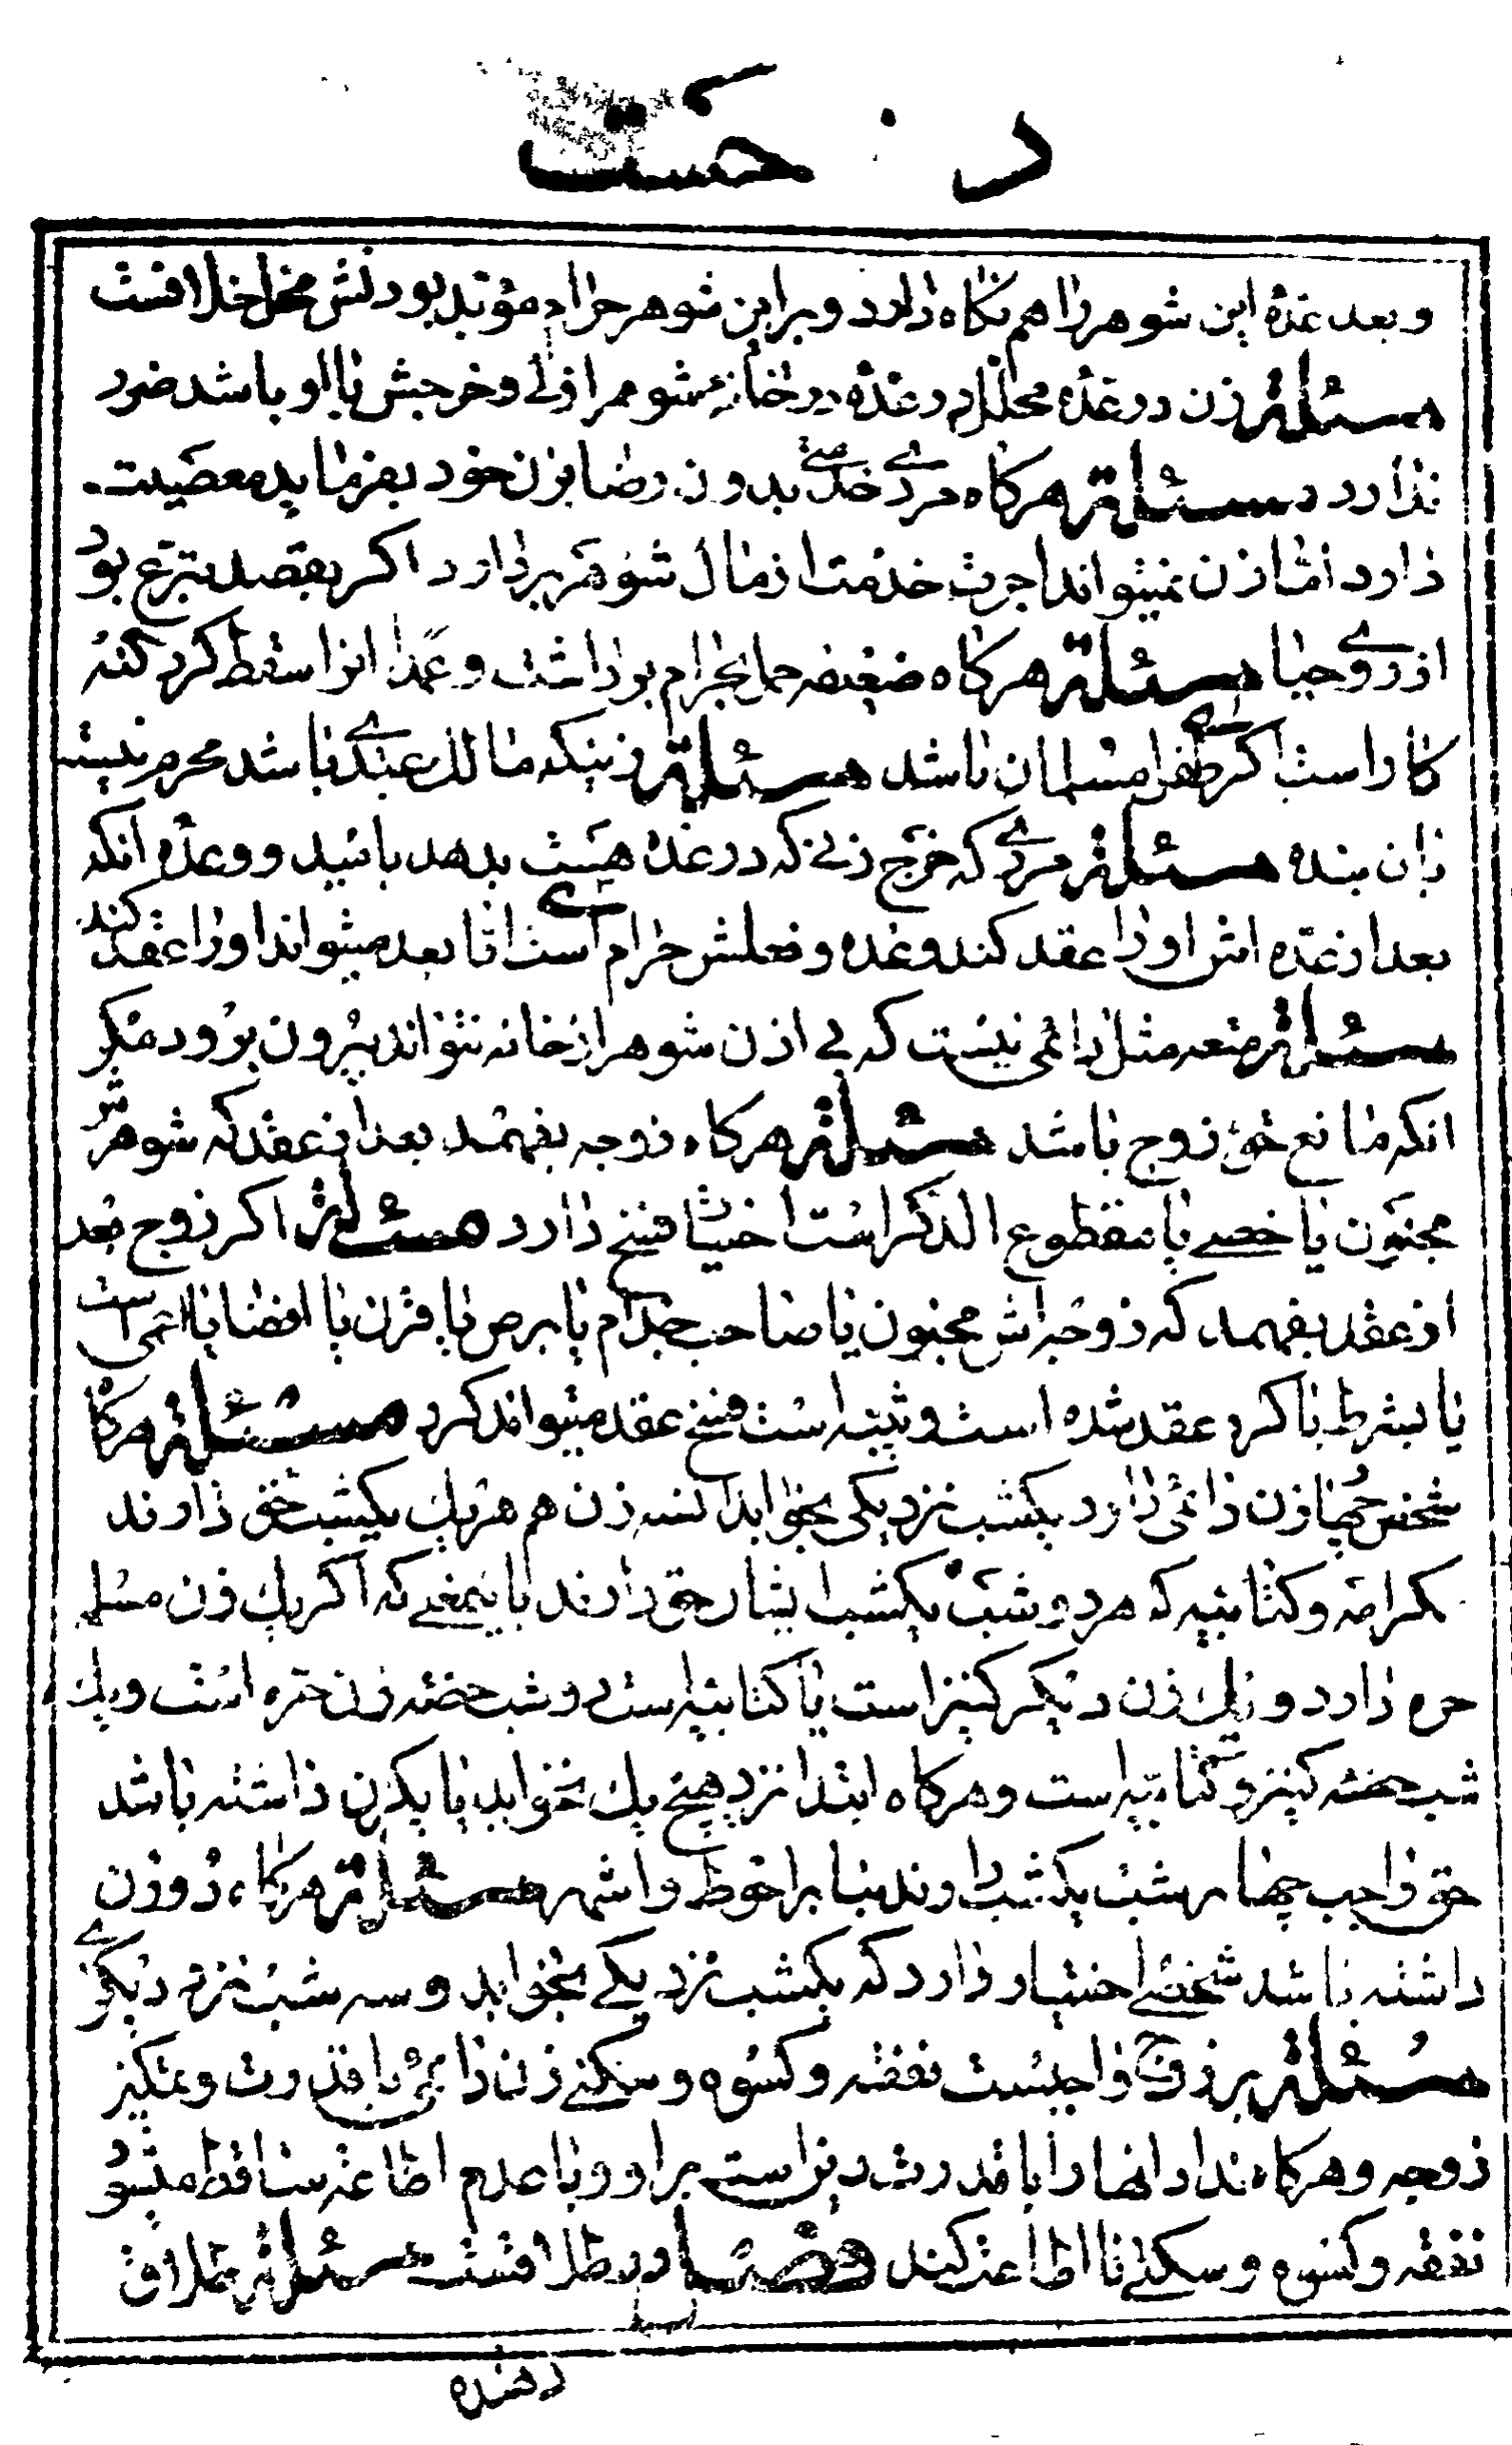 و بعد عدّه این شوهر را هم نگاه دارد و بر این شوهر حرام مؤبّد بودنش محل خلافست
مسئلة زن در عدّه محلل در عدّه در خانهٔ شوهر اوّلی و خرجش با او باشد ضرر
ندارد مسئلة هرگاه مردی خدمتی بدون رضا بزن خود بفرماید معصیت
دارد امّا زن نمیتواند اجرت خدمت از مال شوهر بردارد اگر بقصد تبرّع بود
از روی حیا مسئلة هرگاه ضعیفه حمل بحرام برداشت و عمداً انرا سقط کرد گنه
کار است اگر طفل مسلمان باشد مسئلة زنیکه مالک عبدی باشد محرم نیست
بان بنده مسئلة مردی که خرج زنی که در عدّه هست بدهد باامید و وعدّه آنکه
بعد از عدّه اش او را عقد کند وعده و فعلش حرام است امّا بعد میتواند او را عقد کند
مسئلة متعه مثل دائمی نیست که بی اذن شوهر از خانه نتواند بیرون برود مگر
انکه مانع حق زوج باشد مسئلة هرگاه زوجه بفهمد بعد از عقد که شوهرش
مجنون یا خصی یا مقطوع الذکر است اختیار فسخ دارد مسئلة اگر زوج بعد
از عقد بفهمد که زوجه اش مجنون یا صاحب جذام یا برص یا قرن یا افضا یا اعمی است
یا بشرط باکره عقد شده است و ثیّبه است فسخ عقد میتواند کرد مسئلة هرگاه
شخص چهار زن دائمی دارد یکشب نزد یکی بخوابد آنسه زن هم هر یک یکشب حق دارند
مگر امة و کتابیّه که هر دو شب یکشب ایشان حق دارند باینمعنی که اگر یک زن مسلمه
حره دارد و یک زن دیگر کنیز است یا کتابیّه است دو شب حصّه زن حرّه است و یک
شب حصّه کنیز و کتابیّه است و هرگاه ابتدا نزد هیچ یک نخوابد یا یکزن داشته باشد
حق واجب چهار شب یکشب دارند بنا بر احوط و اشهر مسئلة هرگاه دو زن
داشته باشد شخصی اختیار دارد که یکشب نزد یکی بخوابد و سه شب نزد دیگری
مسئلة بر زوج واجبست نفقه و کسوه و سکنی زن دائمی با قدرت و تمکین
زوجه و هرگاه نداد انها را با قدرت دین است بر او و با عدم اطاعة ساقط میشود
نفقه و کسوه و سکنی تا اطاعت کند فصل در طلاقست مسئلة طلاق
دهنده